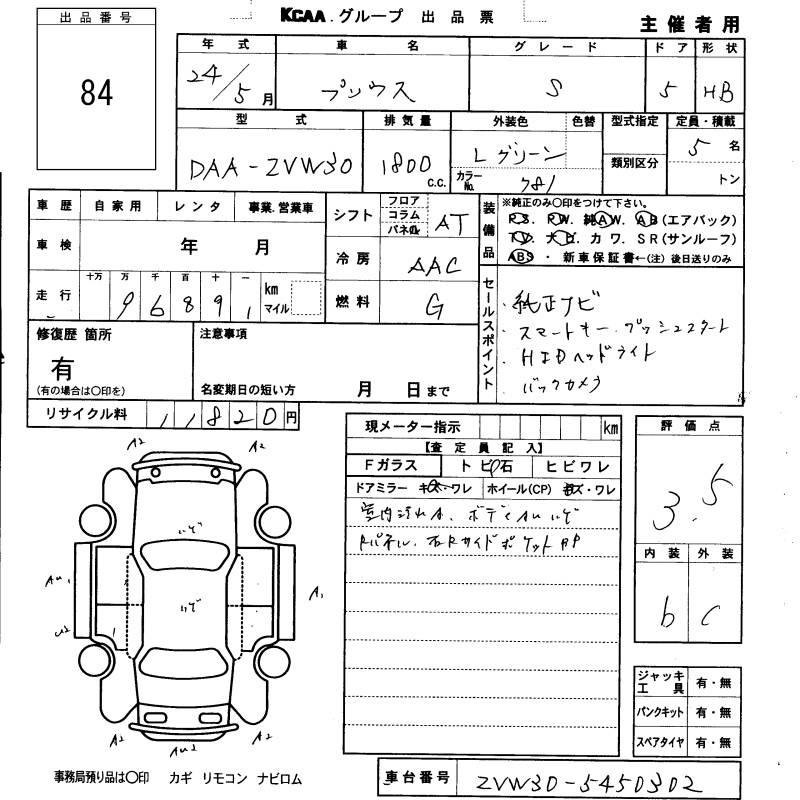 出品番号
84
KCAA.グループ 出品票
主催者用
年式 車名 グレード ドア 形状
24/5月 プリウス S 5 HB
型式 排気量 外装色 色替 型式指定 定員・積載
DAA-ZVW30 1800 c.c. Lグリーン 5名
カラーNo. 781 類別区分 トン
車歴 自家用 レンタ 事業.営業車
シフト フロア コラム パネル AT
装備品 ※純正のみ〇印をつけて下さい。
P.S. P.W. 純A.W. A.B(エアバック)
T.V. ナビ カワ. SR(サンルーフ)
ABS・新車保証書←(注)後日送りのみ
車検 年 月
冷房 AAC
走行 十万 万 千 百 十 一 km マイル
9 6 8 9 1
燃料 G
セールスポイント
・純正ナビ
・スマートキー.プッシュスタート
・HIDヘッドライト
バックカメラ
修復歴 箇所
有
(有の場合は〇印を)
注意事項
名変期日の短い方 月 日まで
リサイクル料 11820円
現メーター指示 km
【査定員記入】
Fガラス トビ石 ヒビワレ
ドアミラー キズ・ワレ ホイール(CP) キズ・ワレ
室内汚れA、ボディAUいぜ
Rパネル、右Rサイドポケット
評価点
3.5
内装 外装
b C
A2 A2
いぜ
AU1 A1
いぜ
U2
A2 AU2 A2
ジャッキ工具 有・無
パンクキット 有・無
スペアタイヤ 有・無
事務局預り品は〇印 カギ リモコン ナビロム
車台番号 ZVW30-5450302